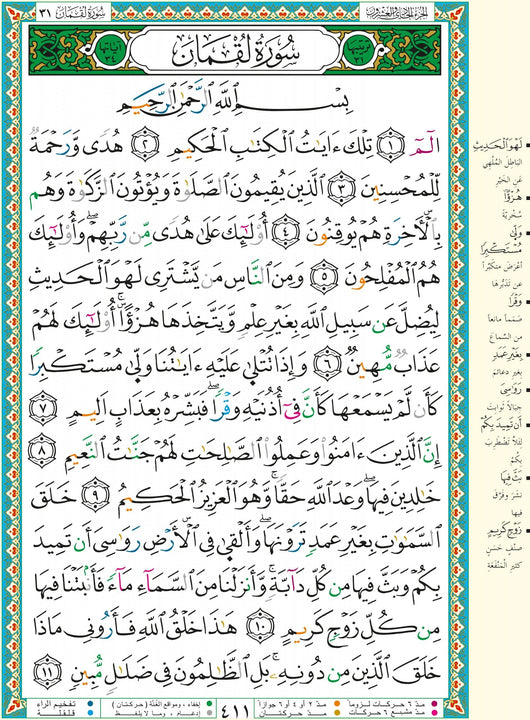 الجزء الحادي والعشرون
سورة لقمان ٣١
ترتيبها ٣١
سُورَةُ لُقْمَانَ
آياتها ٣٤
بِسْمِ ٱللَّهِ ٱلرَّحْمَٰنِ ٱلرَّحِيمِ
الٓمٓ ١ تِلْكَ ءَايَٰتُ ٱلْكِتَٰبِ ٱلْحَكِيمِ ٢ هُدًى وَرَحْمَةً
لِّلْمُحْسِنِينَ ٣ ٱلَّذِينَ يُقِيمُونَ ٱلصَّلَوٰةَ وَيُؤْتُونَ ٱلزَّكَوٰةَ وَهُم
بِٱلْءَاخِرَةِ هُمْ يُوقِنُونَ ٤ أُو۟لَٰٓئِكَ عَلَىٰ هُدًى مِّن رَّبِّهِمْ ۖ وَأُو۟لَٰٓئِكَ
هُمُ ٱلْمُفْلِحُونَ ٥ وَمِنَ ٱلنَّاسِ مَن يَشْتَرِى لَهْوَ ٱلْحَدِيثِ
لِيُضِلَّ عَن سَبِيلِ ٱللَّهِ بِغَيْرِ عِلْمٍ وَيَتَّخِذَهَا هُزُوًا ۚ أُو۟لَٰٓئِكَ لَهُمْ
عَذَابٌ مُّهِينٌ ٦ وَإِذَا تُتْلَىٰ عَلَيْهِ ءَايَٰتُنَا وَلَّىٰ مُسْتَكْبِرًا
كَأَن لَّمْ يَسْمَعْهَا كَأَنَّ فِىٓ أُذُنَيْهِ وَقْرًا ۖ فَبَشِّرْهُ بِعَذَابٍ أَلِيمٍ ٧
إِنَّ ٱلَّذِينَ ءَامَنُوا۟ وَعَمِلُوا۟ ٱلصَّٰلِحَٰتِ لَهُمْ جَنَّٰتُ ٱلنَّعِيمِ ٨
خَٰلِدِينَ فِيهَا ۖ وَعْدَ ٱللَّهِ حَقًّا ۚ وَهُوَ ٱلْعَزِيزُ ٱلْحَكِيمُ ٩ خَلَقَ
ٱلسَّمَٰوَٰتِ بِغَيْرِ عَمَدٍ تَرَوْنَهَا ۖ وَأَلْقَىٰ فِى ٱلْأَرْضِ رَوَٰسِىَ أَن تَمِيدَ
بِكُمْ وَبَثَّ فِيهَا مِن كُلِّ دَآبَّةٍ ۚ وَأَنزَلْنَا مِنَ ٱلسَّمَآءِ مَآءً فَأَنۢبَتْنَا فِيهَا
مِن كُلِّ زَوْجٍ كَرِيمٍ ١٠ هَٰذَا خَلْقُ ٱللَّهِ فَأَرُونِى مَاذَا
خَلَقَ ٱلَّذِينَ مِن دُونِهِۦ ۚ بَلِ ٱلظَّٰلِمُونَ فِى ضَلَٰلٍ مُّبِينٍ ١١
لَهْوَ الحَدِيثِ
الباطل المُلهي
عن الخير
هُزُوًا
سخرية
وَلَّى
مُسْتَكْبِرًا
أعرض متكبّراً
عن تدبّرها
وَقْرًا
صمماً مانعاً
من السّماع
بِغَيْرِ عَمَدٍ
بغير دعائم
رَوَاسِيَ
جبالاً ثوابت
أَن تَمِيدَ بِكُمْ
لئلا تضطرب
بكم
بَثَّ فِيهَا
نشر وفرّق
فيها
زَوْجٍ كَرِيمٍ
صنف حسن
كثير المنفعة
مدّ ٦ حركات لزوماً
مدّ ٢ أو ٤ أو ٦ جوازاً
مدّ مشبع ٦ حركات
مدّ حركتان
٤١١
إخفاء، ومواقع الغُنَّة (حركتان)
إدغام، وما لا يُلفظ
تفخيم الراء
قلقلة